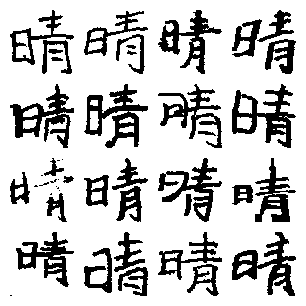 晴晴晴晴
晴晴晴晴
晴晴晴晴
晴晴晴晴